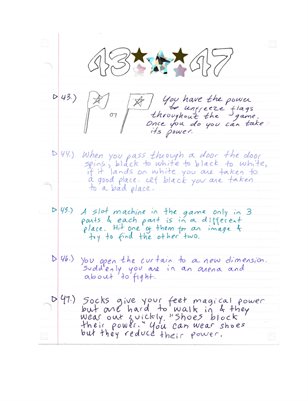 43 47
43.) or You have the power
to unfreeze flags
throughout the game.
Once you do you can take
its power.
44.) When you pass through a door the door
spins, black to white to black to white,
if it lands on white you are taken to
a good place. if black you are taken
to a bad place.
45.) A slot machine in the game only in 3
parts & each part is in a different
place. Hit one of them for an image &
try to find the other two.
46.) You open the curtain to a new dimension.
Suddenly you are in an arena and
about to fight.
47.) Socks give your feet magical power
but are hard to walk in & they
wear out quickly. "Shoes block
their power." You can wear shoes
but they reduce their power.